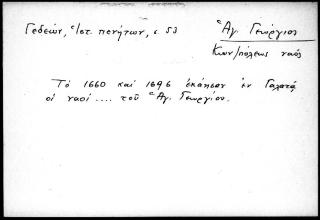 Γεδεών, Ἱστ. πενήτων, σ. 53
Ἅγ. Γεώργιος
Κων/πόλεως ναός
Τὸ 1660 καὶ 1696 ἐκάησαν ἐν Γαλατᾷ
οἱ ναοί .... τοῦ Ἁγ. Γεωργίου.